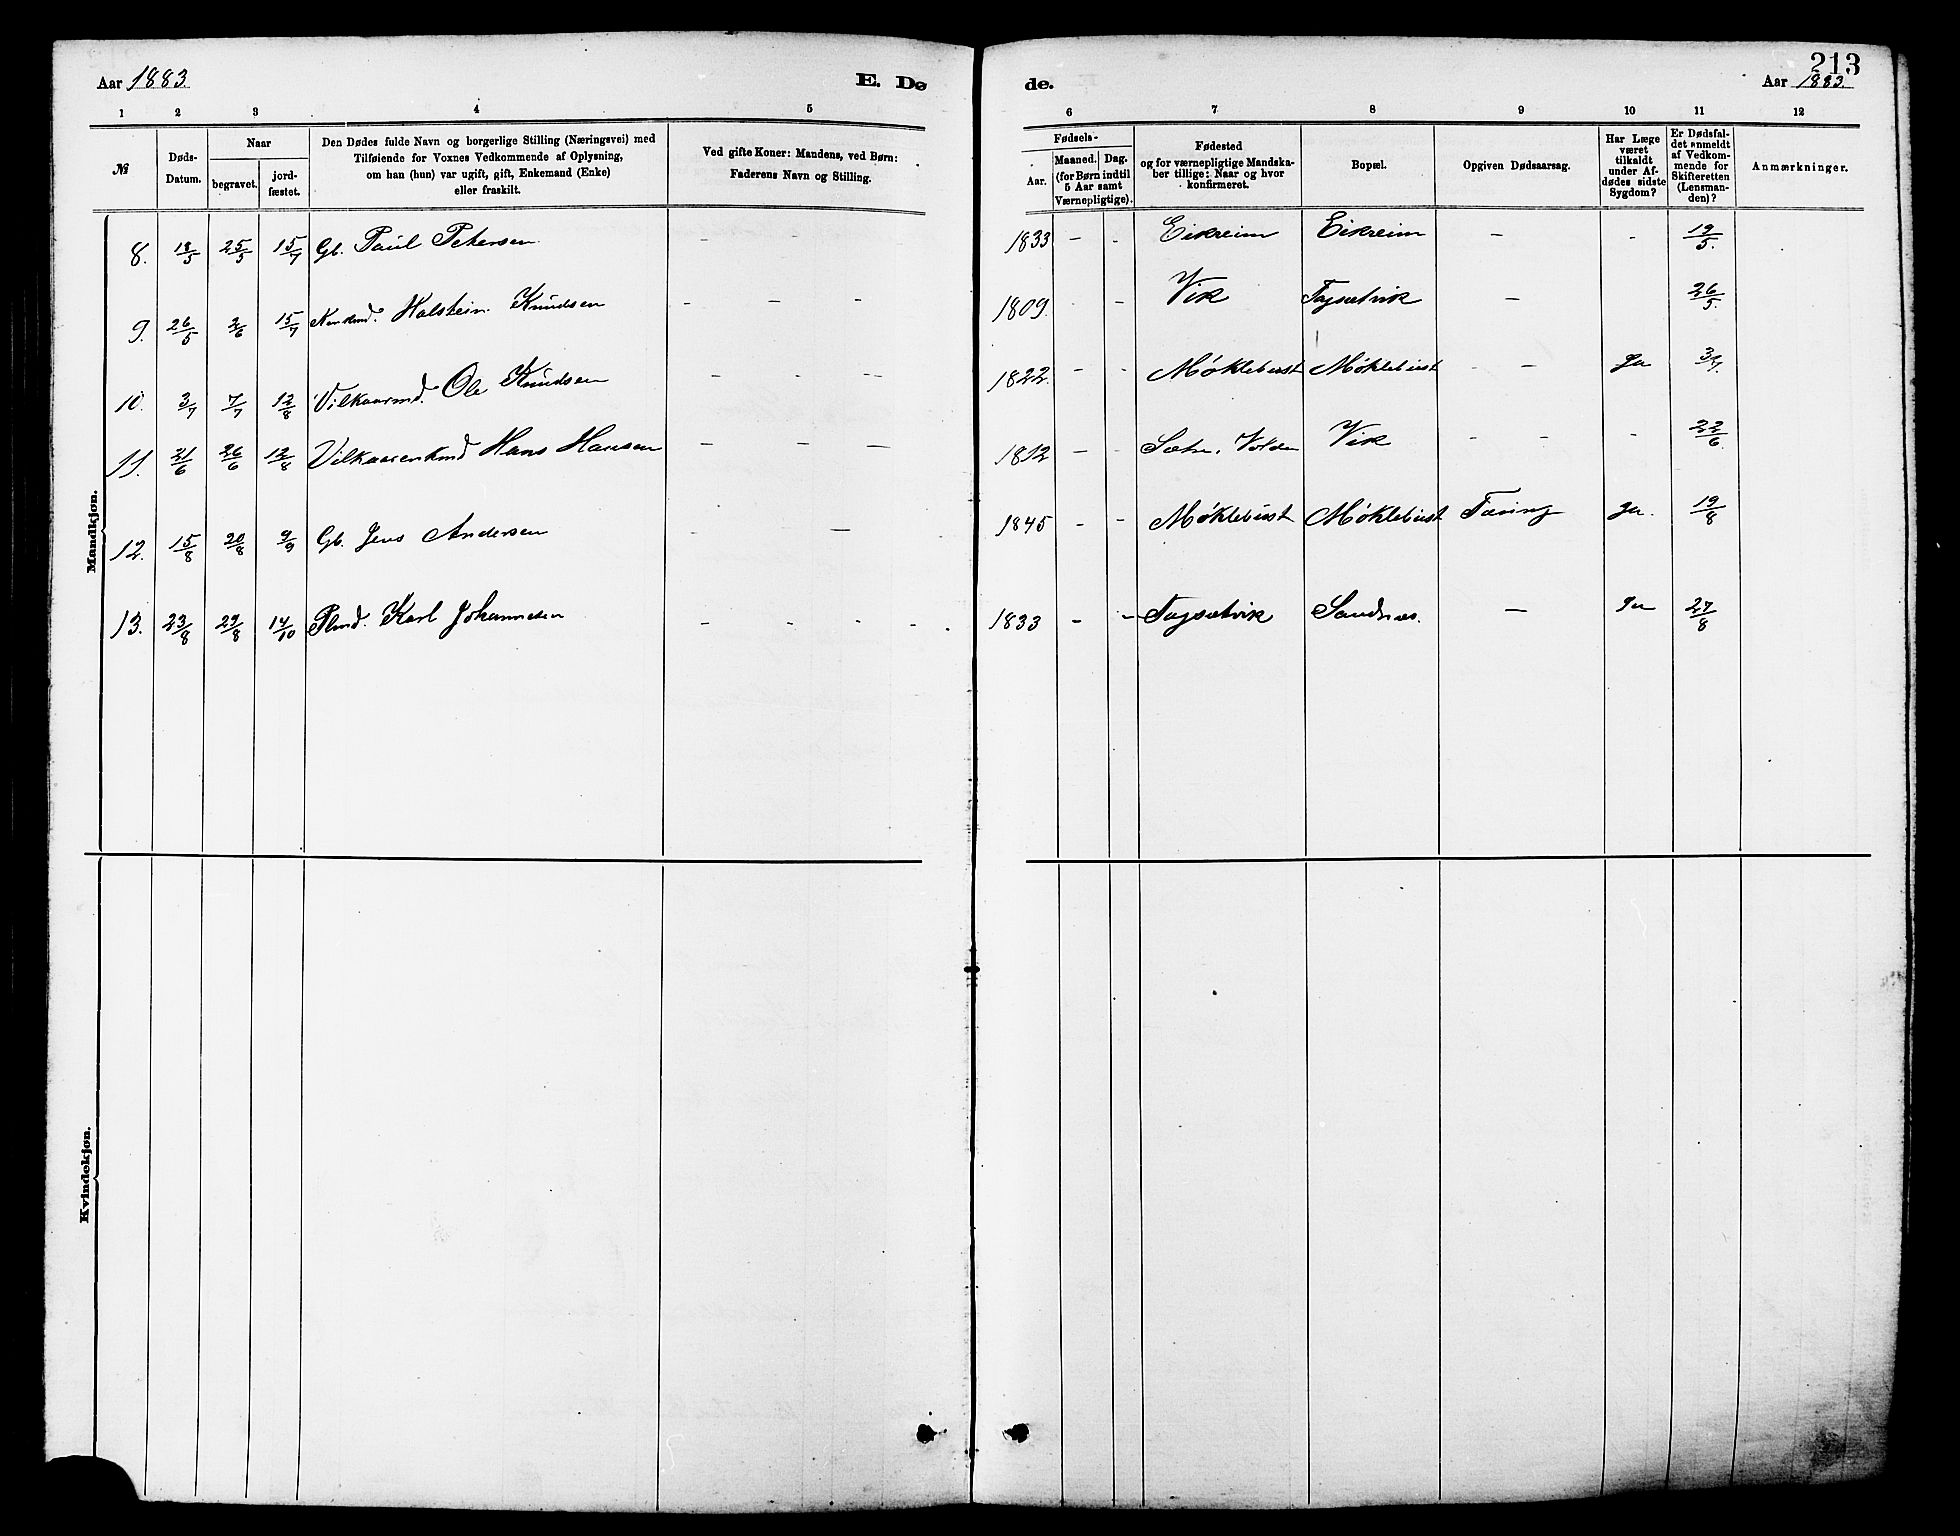 Aar 1883.
E. Dø
de.
213
Aar 1883.
1 2 3 4 5
6 7 8 9 10 11 12
№
Døds-
Datum.
Naar
begravet.
jord-
fæstet.
Den Dødes fulde Navn og borgerlige Stilling (Næringsvei) med
Tilføiende for Voxnes Vedkommende af Oplysning,
om han (hun) var ugift, gift, Enkemand (Enke)
eller fraskilt.
Ved gifte Koner: Mandens, ved Børn:
Faderens Navn og Stilling.
Fødsels-
Aar.
Maaned. Dag.
(for Børn indtil
5 Aar samt
Værnepligtige).
Fødested
og for værnepligtige Mandska-
ber tillige: Naar og hvor
konfirmeret.
Bopæl.
Opgiven Dødsaarsag.
Har Læge
været
tilkaldt
under Af-
dødes sidste
Sygdom?
Er Dødsfal-
det anmeldt
af Vedkom-
mende for
Skifteretten
(Lensman-
den)?
Anmærkninger.
Mandkjøn.
8. 18/5 25/5 15/7 Gb. Paul Petersen - - - 1833 - - Eikreim Eikreim - - 19/5.
9. 26/5 2/6 15/7 Holstein Knudsen - - - 1809. - - Vik Tagsætvik - 26/5.
10. 3/7 7/7 12/8 Vilkaarmd. Ole Knudsen - - - 1822. - - Møklebust Møklebust - - Ja 3/7.
11. 21/6 26/6 12/8 Vilkaarenkmd Hans Hansen - - - 1812 - - Sætre, Volden Vik - - - 22/6.
12. 15/8 20/8 9/9 Gb. Jens Andersen - - 1845 - - Møklebust Møklebust Tæring Ja. 19/8
13. 23/8 29/8 14/10 Plmd. Karl Johannesen - - - - 1833 - - Tagsætvik Sandnæs. - Ja 27/8
Kvindekjøn.